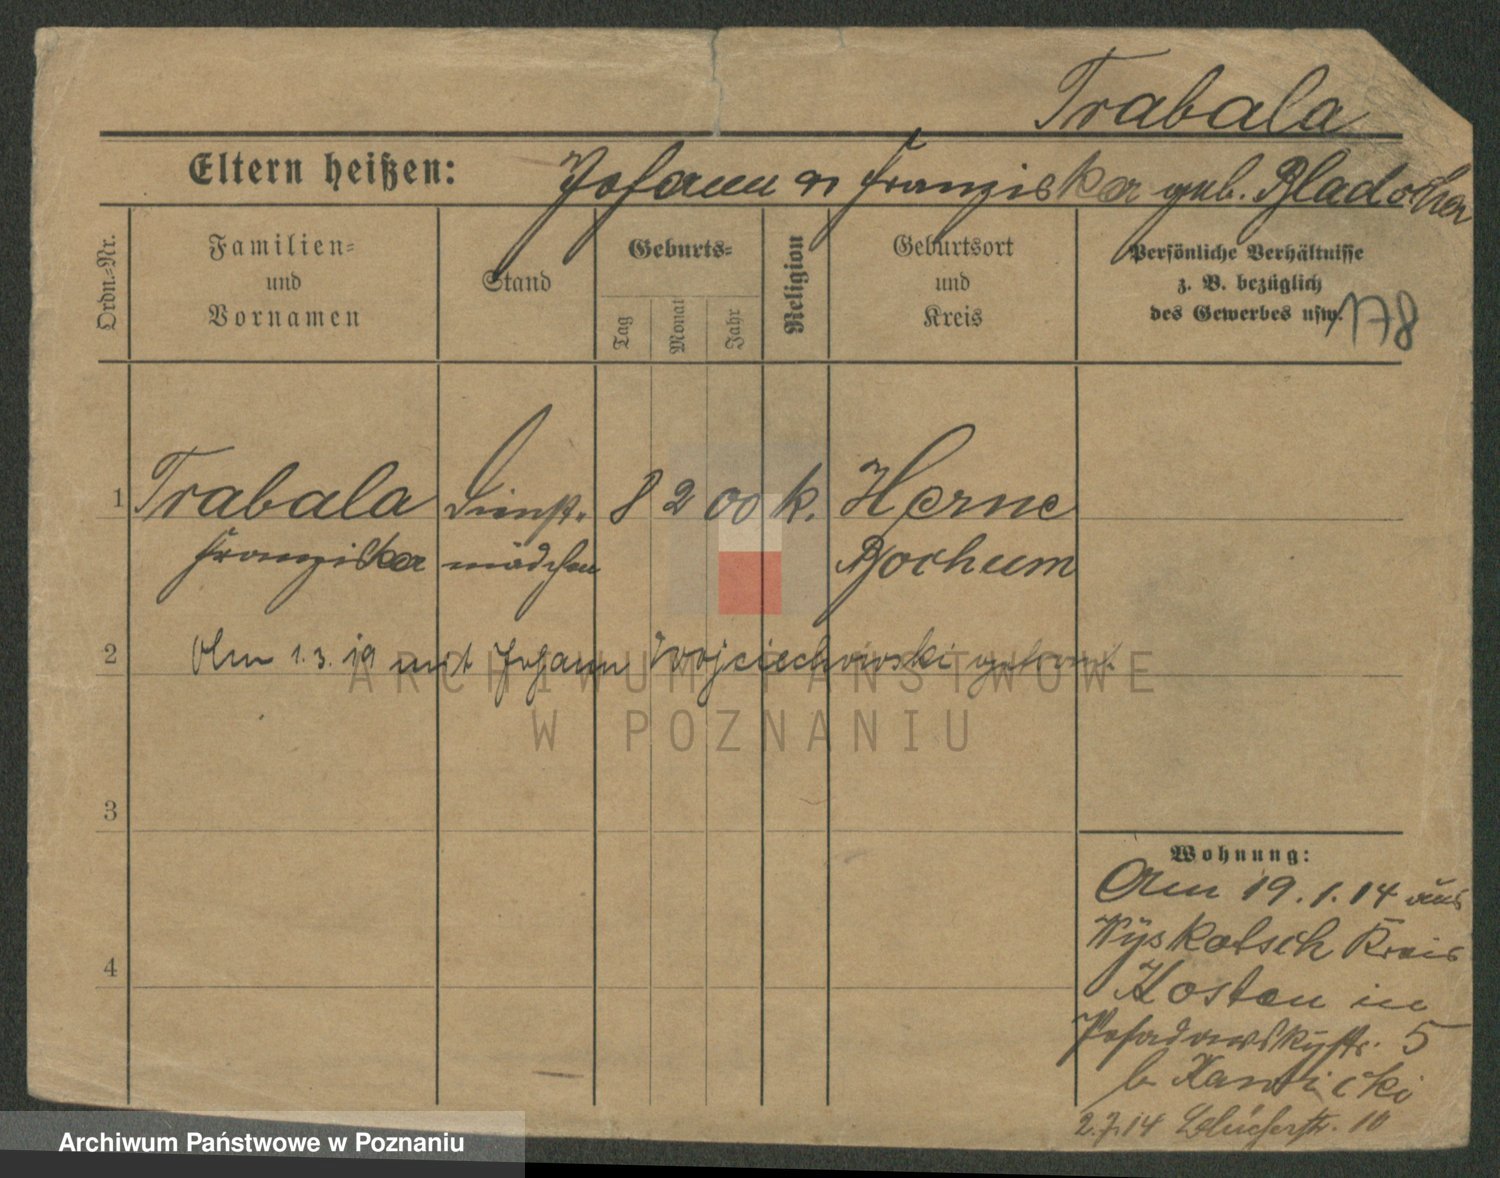 Trabala
Eltern heißen: Johann u Franziska geb. Bladocha
Ordn.-Nr.
Familien-
und
Vornamen
Stand
Geburts-
Tag
Monat
Jahr
Religion
Geburtsort
und
Kreis
Persönliche Verhältnisse
z. B. bezüglich
des Gewerbes usw.
178
1 Trabala Dienst- 8 2 00 k. Herne
Franziska mädchen Bochum
2 Am 1.3.19 mit Johann Wojciechowski getraut.
3
4
Wohnung:
Am 19.1.14 aus
Wyskotsch Kreis
Kosten in
Posadowskystr. 5
b.
2.7.14 Blücherstr. 10
ARCHIWUM PAŃSTWOWE
W POZNANIU
Archiwum Państwowe w Poznaniu